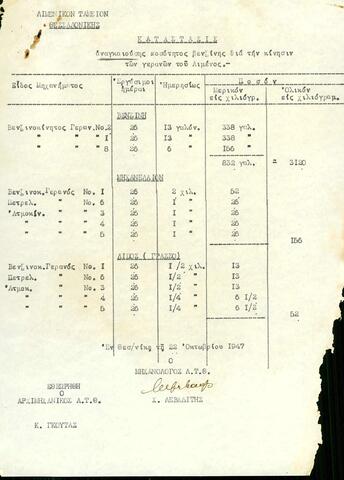 ΛΙΜΕΝΙΚΟΝ ΤΑΜΕΙΟΝ
ΘΕΣΣΑΛΟΝΙΚΗΣ
Κ Α Τ Α Σ Τ Α Σ Ι Σ
ἀναγκαιούσης ποσότητος βενζίνης διά τήν κίνησιν
τῶν γερανῶν τοῦ Λιμένος.-
Εἶδος Μηχανήματος Ἐργάσιμοι ἡμέραι Ἡμερησίως Π ο σ ό ν
Μερικόν εἰς χιλιόγρ. Ὁλικόν εἰς χιλιόγραμ.
ΒΕΝΖΙΝΗ
Βενζινοκίνητος Γεραν.Νο.2 26 13 γαλόν. 338 γαλ.
" " " 1 26 13 " 338 "
" " " 8 26 6 " 156 "
832 γαλ. = 3120
ΜΗΧΑΝΕΛΑΙΟΝ
Βενζινοκ.Γερανός Νο. 1 26 2 χιλ. 52
Πετρελ. " Νο. 6 26 1 " 26
Ἀτμοκίν. " " 3 26 1 " 26
" " " 4 26 1 " 26
" " " 5 26 1 " 26
156
ΛΙΠΟΣ ( ΓΡΑΣΣΟ)
Βενζινοκ.Γερανός Νο. 1 26 1/2 χιλ. 13
Πετρελ. " Νο. 6 26 1/2 " 13
Ἀτμοκ. " Νο. 3 26 1/2 " 13
" " " 4 26 1/4 " 6 1/2
" " " 5 26 1/4 " 6 1/2
52
Ἐν Θεσ/νίκῃ τῇ 22 Ὀκτωβρίου 1947
Ο
ΜΗΧΑΝΟΛΟΓΟΣ Λ.Τ.Θ.
ΕΘΕΩΡΗΘΗ
Ο
ΑΡΧΙΜΗΧΑΝΙΚΟΣ Λ.Τ.Θ.
Σ. ΑΣΒΑΔΙΤΗΣ
Κ. ΓΚΟΥΤΑΣ